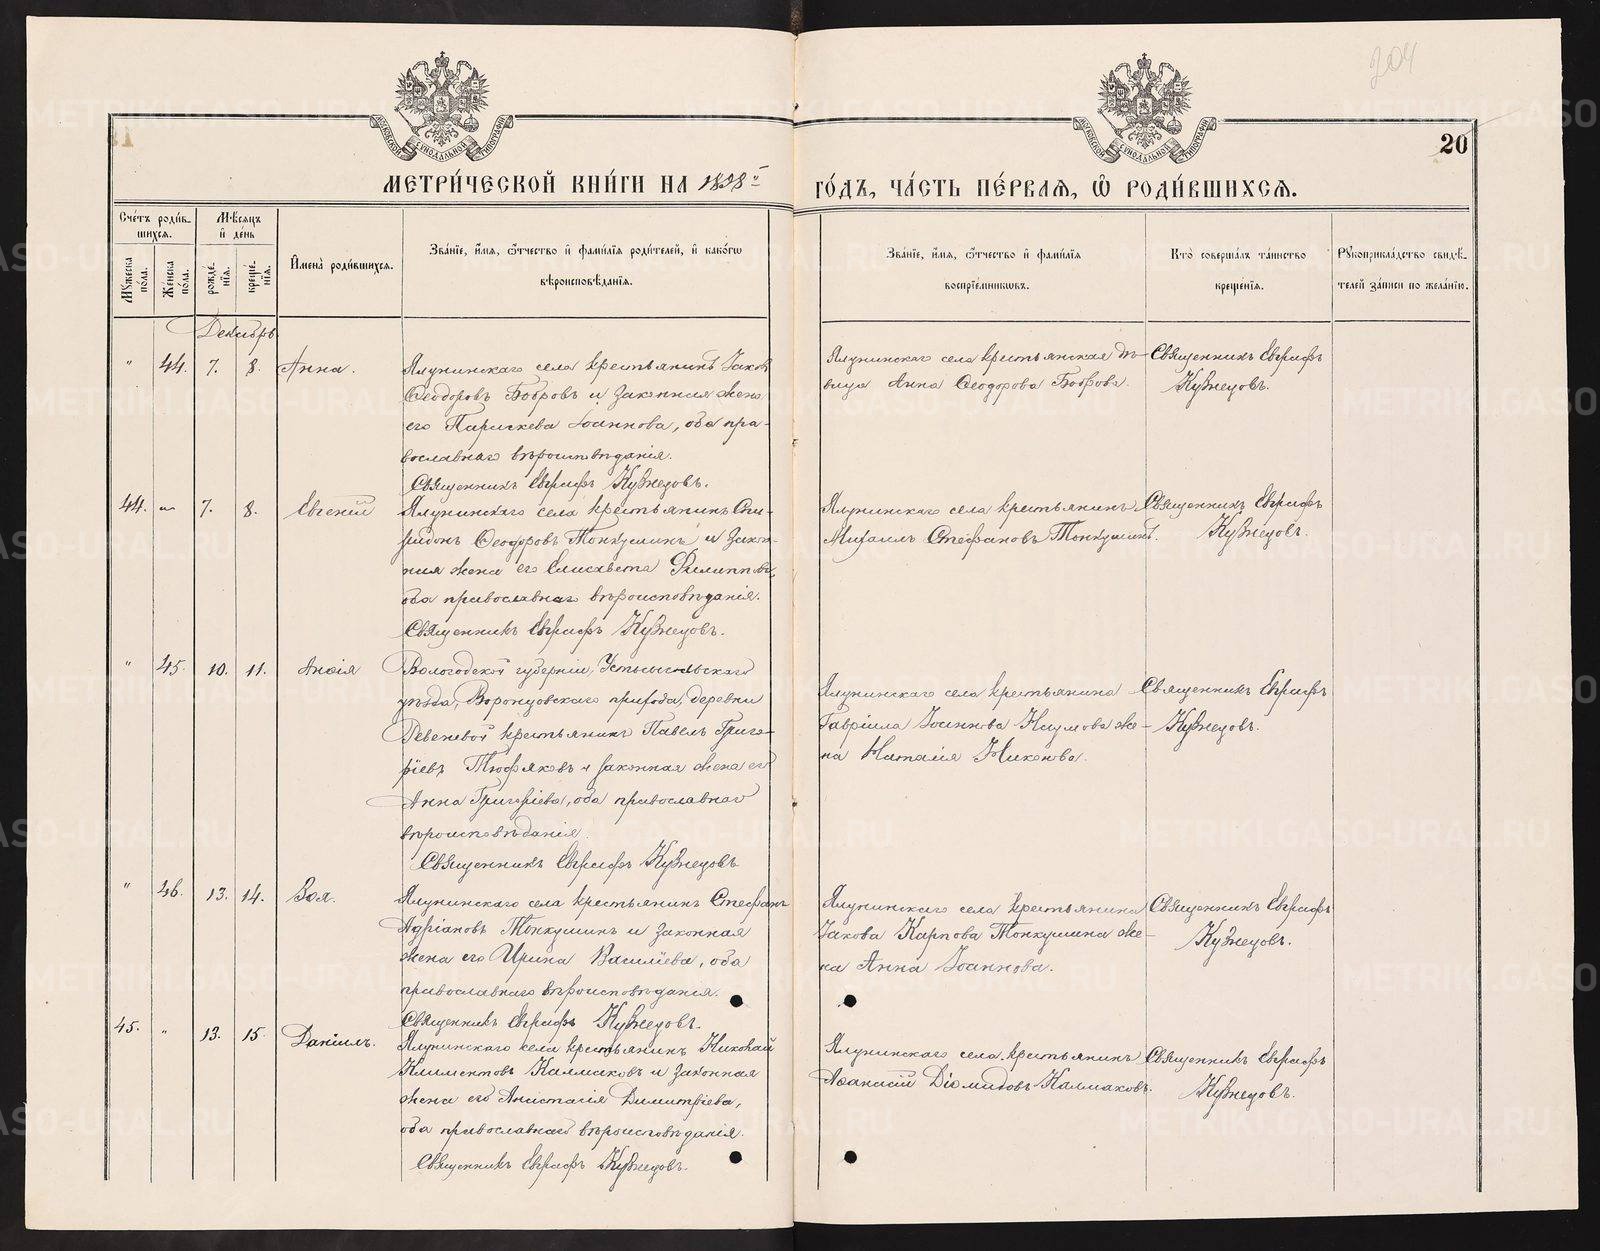 204
МОСКОВСКОЙ СѴНОДАЛЬНОЙ ТИПОГРАФІИ
МОСКОВСКОЙ СѴНОДАЛЬНОЙ ТИПОГРАФІИ
20
МЕТРИ́ЧЕСКОЙ КНИ́ГИ НА 1898 й
ГО́ДЪ, ЧА́СТЬ ПЕ́РВАЯ, Ѽ РОДИ́ВШИХСЯ.
Сче́тъ роди́в-
шихся.
Мѣ́сяцъ
и҆ де́нь
Му́жеска
по́ла.
Же́нска
по́ла.
рожде́-
нїя.
креще́-
нїя.
И҆мена̀ роди́вшихся.
Зва́нїе, и҆́мя, ѻ҆́тчество и҆ фамѝлїя роди́телей, и҆ како́гѡ
вѣроисповѣ́данїя.
Зва́нїе, и҆́мя, ѻ҆́тчество и҆ фамѝлїя
воспрїе́мникѡвъ.
Кто̀ соверша́лъ та́инство
креще́нїя.
Рукоприкла́дство свидѣ́-
телей за́писи по жела́нїю.
Декабрь
" 44. 7. 8. Анна.
Ялунинскаго села крестьянинъ Іаковъ
Ѳеодоровъ Бобровъ и законная жена
его Параскева Іоаннова, оба пра-
вославнаго вѣроисповѣданія.
Священникъ Евграфъ Кузнецовъ.
Ялунинскаго села крестьянская дѣ-
вица Анна Ѳеодорова Боброва.
Священникъ Евграфъ
Кузнецовъ.
44. " 7. 8. Евгеній
Ялунинскаго села крестьянинъ Спи-
ридонъ Ѳеодоровъ Тонкушинъ и закон-
ная жена его Елисавета Филиппова,
оба православнаго вѣроисповѣданія.
Священникъ Евграфъ Кузнецовъ.
Ялунинскаго села крестьянинъ
Михаилъ Стефановъ Тонкушинъ.
Священникъ Евграфъ
Кузнецовъ.
" 45. 10. 11. Анѳія
Вологодской губерніи, Устьсысольскаго
уѣзда, Воронцовскаго прихода, деревни
крестьянинъ Павелъ Григо-
ріевъ Тюфяковъ и законная жена его
Анна Григоріева, оба православнаго
вѣроисповѣданія.
Священникъ Евграфъ Кузнецовъ
Ялунинскаго села крестьянина
Гавріила Іоаннова Наумова же-
на Наталія Никонова.
Священникъ Евграфъ
Кузнецовъ.
" 46. 13. 14. Зоя.
Ялунинскаго села крестьянинъ Стефанъ
Адріановъ Тонкушинъ и законная
жена его Ирина Василіева, оба
православнаго вѣроисповѣданія.
Священникъ Евграфъ Кузнецовъ.
Ялунинскаго села крестьянина
Іакова Карпова Тонкушина же-
на Анна Іоаннова.
Священникъ Евграфъ
Кузнецовъ.
45. " 13. 15. Даніилъ.
Ялунинскаго села крестьянинъ Николай
Климентовъ Калмаковъ и законная
жена его Анастасія Димитріева,
оба православнаго вѣроисповѣданія.
Священникъ Евграфъ Кузнецовъ.
Ялунинскаго села крестьянинъ
Аѳанасій Діомидовъ Калмаковъ.
Священникъ Евграфъ
Кузнецовъ.